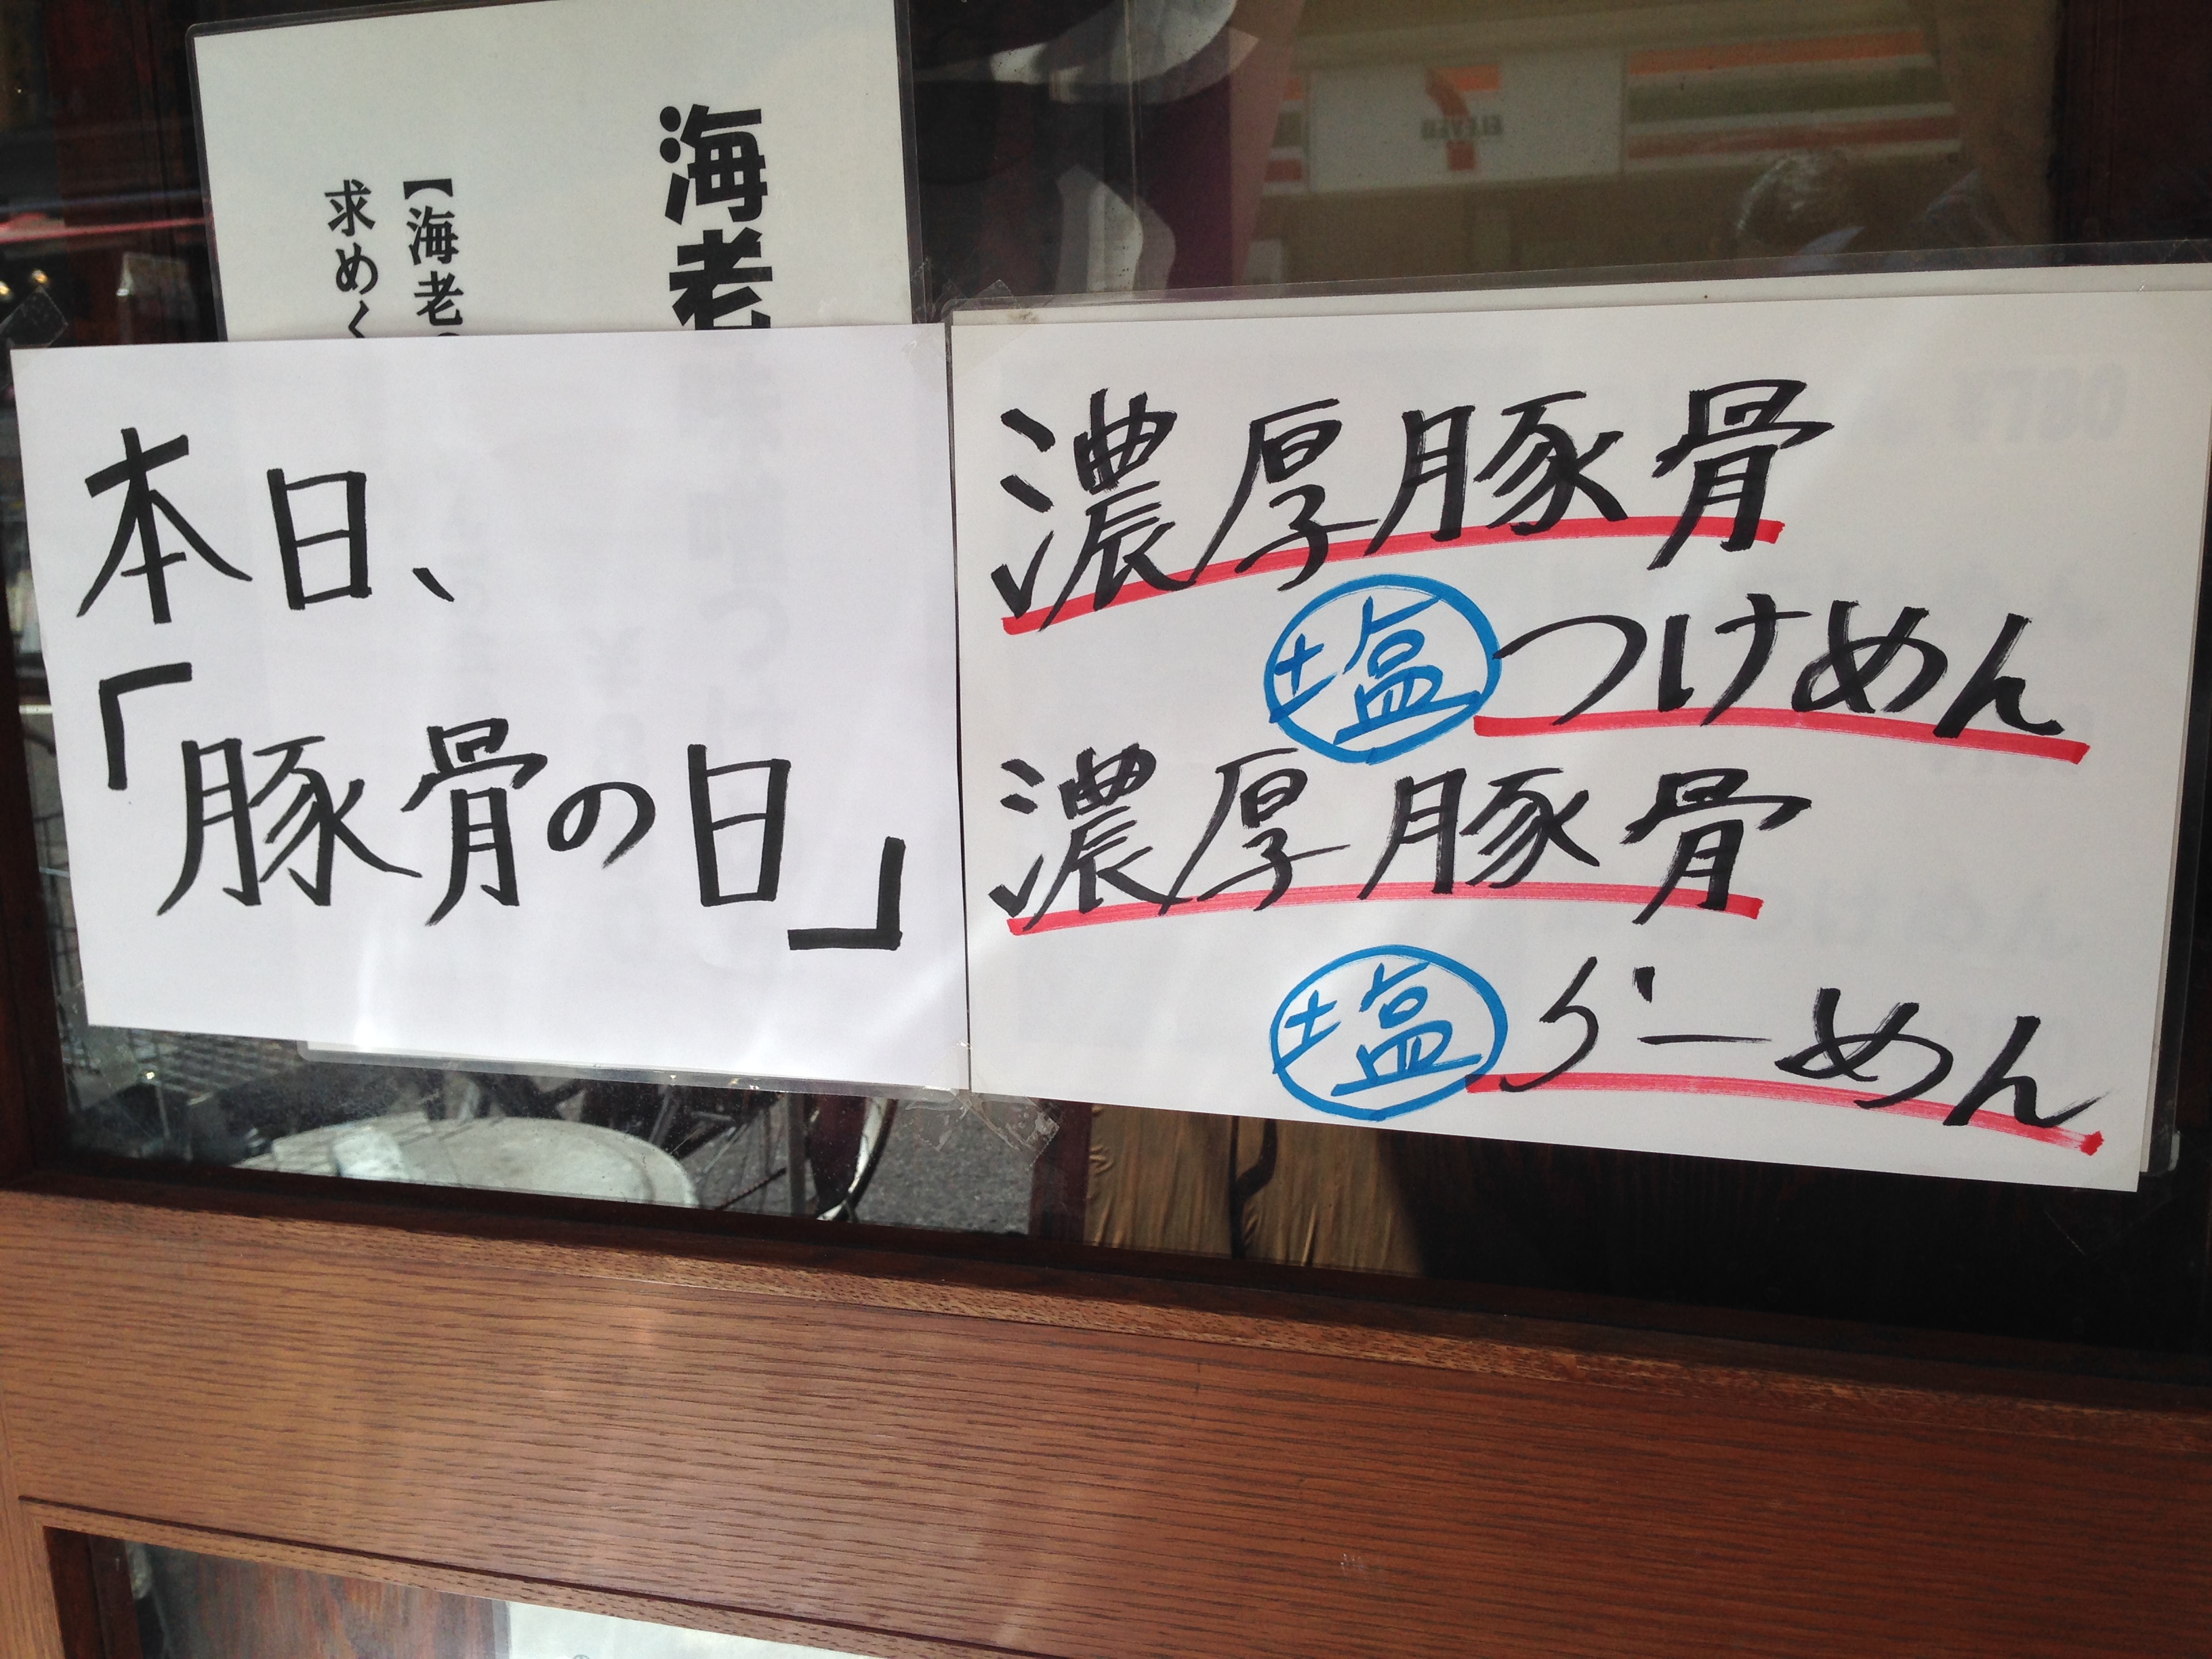 海老
【海老
求めく
本日、
「豚骨の日」
濃厚豚骨
塩つけめん
濃厚豚骨
塩らーめん
ELEVEN